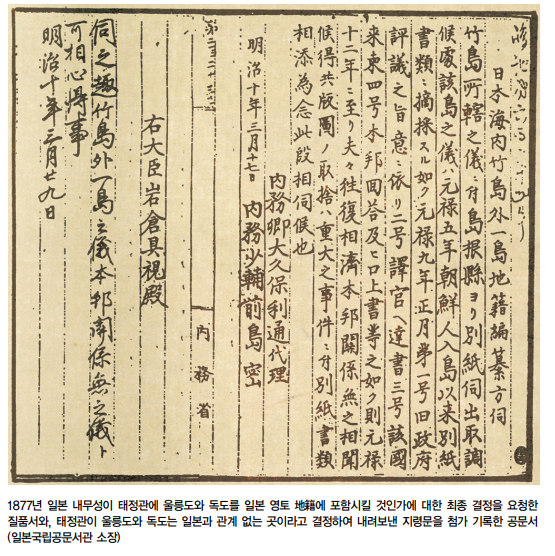 日本海内竹島外一島地籍編纂方伺
竹島所轄之儀ニ付島根縣ヨリ別紙伺出取調
候處該島之儀ハ元禄五年朝鮮人入島以来別紙
書類ニ摘採スル如ク元禄九年正月第一号旧政府
評議之旨意ニ依リ二号譯官ヘ達書三号該國
来柬四号本邦回答及ヒ口上書等之如ク則元禄
十二年ニ至リ夫々往復相濟本邦關係無之相聞
候得共版圖ノ取捨ハ重大之事件ニ付別紙書類
相添為念此段相伺候也
明治十年三月十七日
内務卿大久保利通代理
内務少輔前島密
右大臣岩倉具視殿
内務省
伺之趣竹島外一島之儀本邦関係無之儀ト
可相心得事
明治十年三月廿九日
1877년 일본 내무성이 태정관에 울릉도와 독도를 일본 영토 地籍에 포함시킬 것인가에 대한 최종 결정을 요청한
질품서와, 태정관이 울릉도와 독도는 일본과 관계 없는 곳이라고 결정하여 내려보낸 지령문을 첨가 기록한 공문서
(일본국립공문서관 소장)